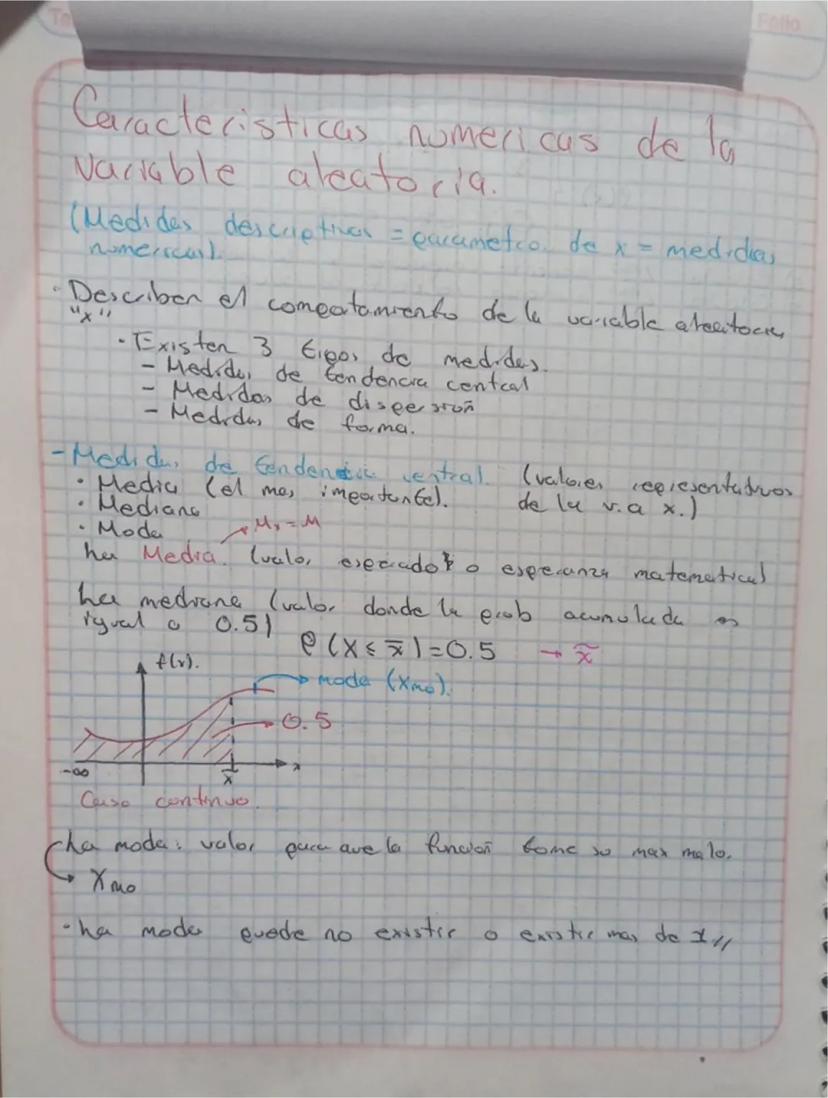 Folio
Caracteristicas numericas de la
variable aleatoria.
(Medidas descriptivas = parametro de x = medidas
numericas).
· Describen el comportamiento de la variable aleatoria
"x"
· Existen 3 tipos de medidas.
- Medidas de tendencia central
- Medidas de dispersión
- Medidas de forma.
- Medidas de tendencia central. (valores representativos
de la v.a x.)
· Media (el mas importante).
· Mediana
· Moda
μx = μ
La Media. (valor esperado o esperanza matematica)
La mediana (valor donde la prob acumulada es
igual a 0.5)
P(X ≤ x̃) = 0.5 → x̃
f(x).
moda (Xmo).
0.5
-∞ x̃ x
Caso continuo.
La moda: valor para que la función tome su max malo.
Xmo
· La moda puede no existir o existir mas de 1//